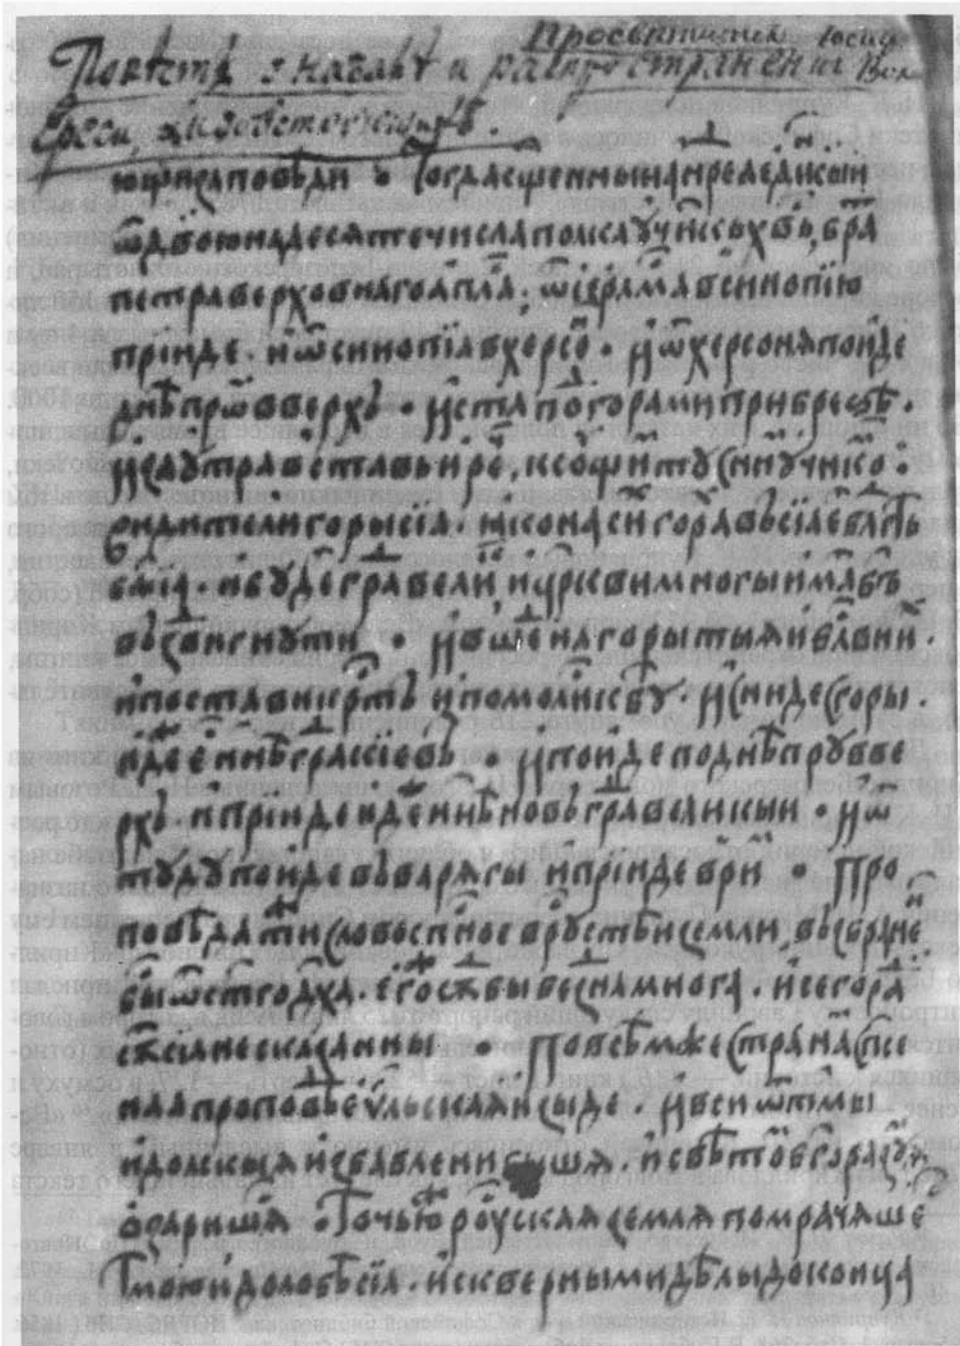 Просветителя Иосиф. Вол.
Повѣсть о началѣ и распространении
Ереси жидовствующихъ.
юще заповѣди. Тогда сщенныи андреа единыи
ѿ двоюнадесяте числа полка учн҃къ хв҃ъ, бра
петра верховнаго апл҃а. ѿ іерл҃ма в синопію
прiиде. и ѿ синопїа в херсо. и ѿ херсоня поиде
днѣпрѡ вверхъ. и ста под горами при брезѣ.
и заутра вставъ и рѐ, к сощимъ с ни учнко.
видите ли горы сїа. яко на си гора въсїаетъ блгть
бжіа. и буде гра вели и цркви многы има бъ
въздвигнути. и вше на горы тыя и блви и.
и постави крть и помоли к бу. и сниде с горы.
идѐ е ннѣ гра кїевъ. и поиде по днѣпру вве
рхъ и прiиде идѐ ннѣ новъгра великыи. и ѿ
туду поиде въ варягы и прiиде в ри. Про
повѣдати слово спное в рустѣи земли, възбране
бы ѿ стго дха. его сѫбы бездна многа. и сего ра
сѫ сiа несказанны. По всѣм же страна спсе
наа проповѣ еульскаа изыде. и вси ѿ тмы
идолскыа избавлени быша. и свѣто бгоразума
озаришя. Точью руская земля помрачяше
Тмою идолобѣсїа. и скверными дѣлы до конца